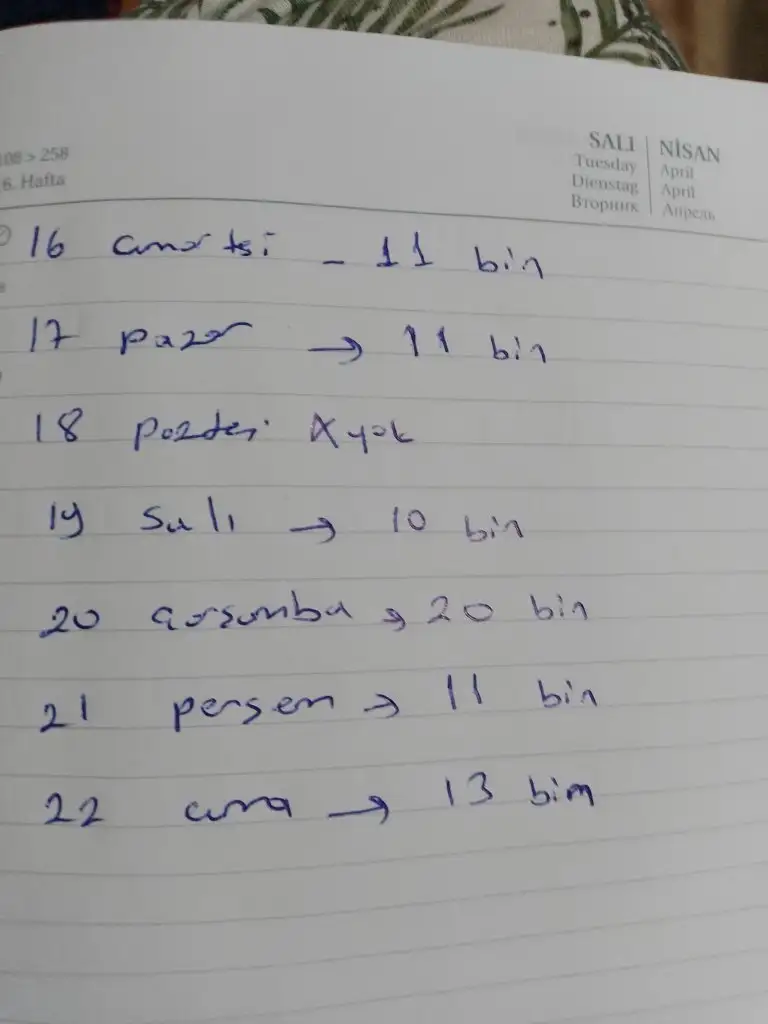 SALI | NİSAN
Tuesday | April
Dienstag | April
Вторник | Апрель
108 > 258
6. Hafta
16 cmartsi - 11 bin
17 pazar → 11 bin
18 paztesi X yok
19 Salı → 10 bin
20 çarşamba → 20 bin
21 perşem → 11 bin
22 cuma → 13 bin